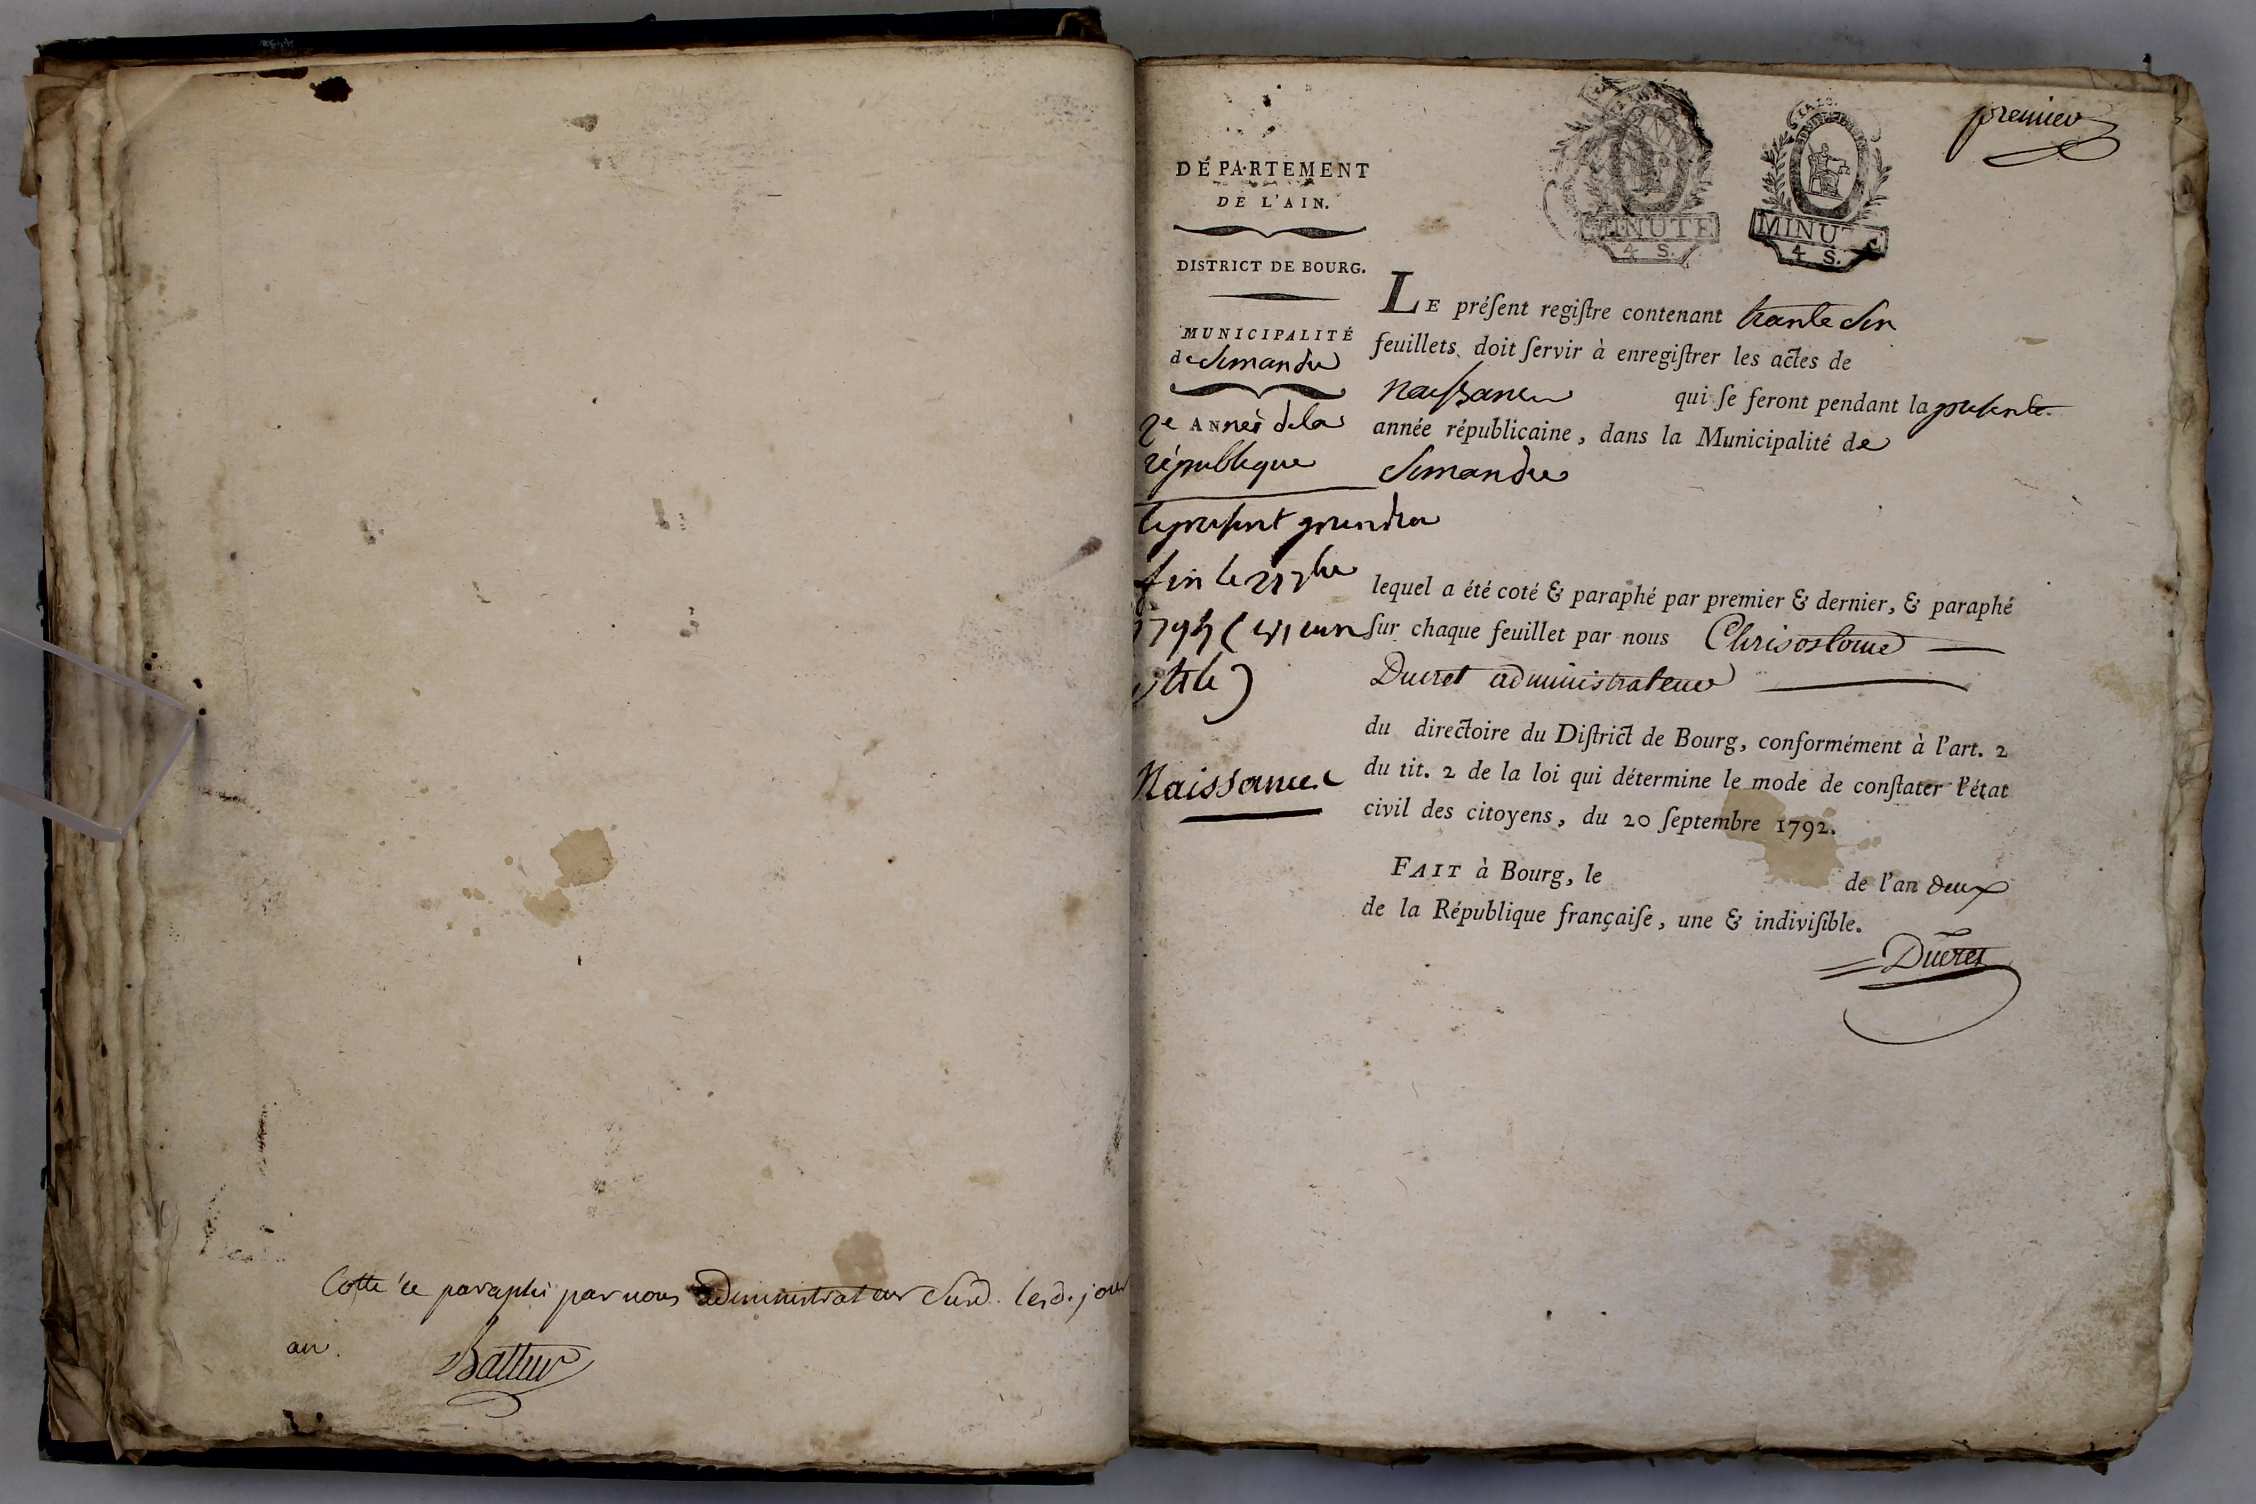 Cotté et paraphé par nous administrateur susd. lesd. jour
an.
premier
MINUTE
4 S.
MINUTE
4 S.
DÉPARTEMENT
DE L'AIN.
DISTRICT DE BOURG.
MUNICIPALITÉ
de Simandre
2e ANnéé de la
république
le présent prendra
fin le 21 7bre
1794 (vieux
stile)
Naissance
LE préſent regiſtre contenant trante six
feuillets doit ſervir à enregiſtrer les actes de
naissance qui ſe feront pendant la présente
année républicaine, dans la Municipalité de
Simandre
lequel a été coté & paraphé par premier & dernier, & paraphé
ſur chaque feuillet par nous Chrisostome
Ducret administrateur
du directoire du Diſtrict de Bourg, conformément à l'art. 2
du tit. 2 de la loi qui détermine le mode de conſtater l'état
civil des citoyens, du 20 ſeptembre 1792.
FAIT à Bourg, le de l'an deux
de la République françaiſe, une & indiviſible.
Ducret